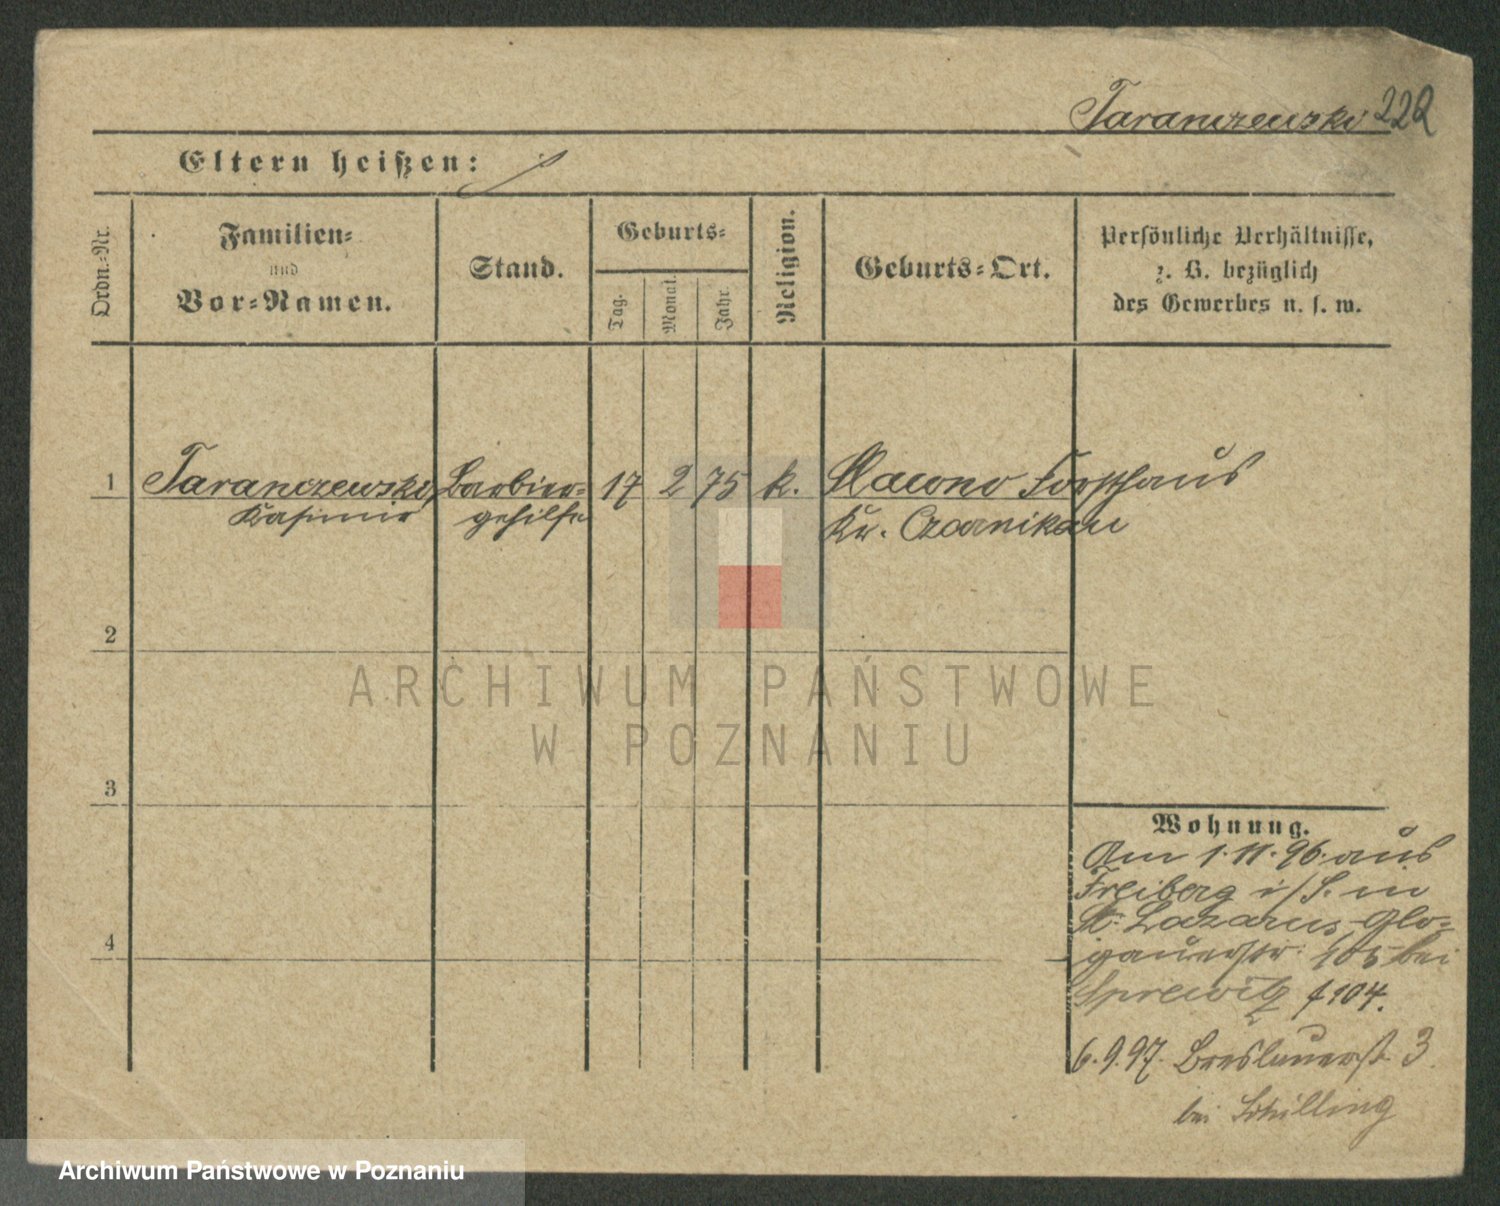 Taranczewski 222
Eltern heißen:
Ordn.-Nr.
Familien-
und
Vor-Namen.
Stand.
Geburts-
Tag.
Monat.
Jahr.
Religion.
Geburts-Ort.
Persönliche Verhältnisse,
z. B. bezüglich
des Gewerbes u. s. w.
1 Taranczewski, Barbier- 17 2 75 k. Slawno Forsthaus
Kasimir gehilfe Kr. Czarnikau
2
ARCHIWUM PAŃSTWOWE
W POZNANIU
3
Wohnung.
Am 1.11.96. aus
Freiberg i/S. in
St. Lazarus, Glo-
4
gauerstr. 105 bei
Sprewitz 104.
6.9.97. Breslauerst. 3
bei Schilling
Archiwum Państwowe w Poznaniu